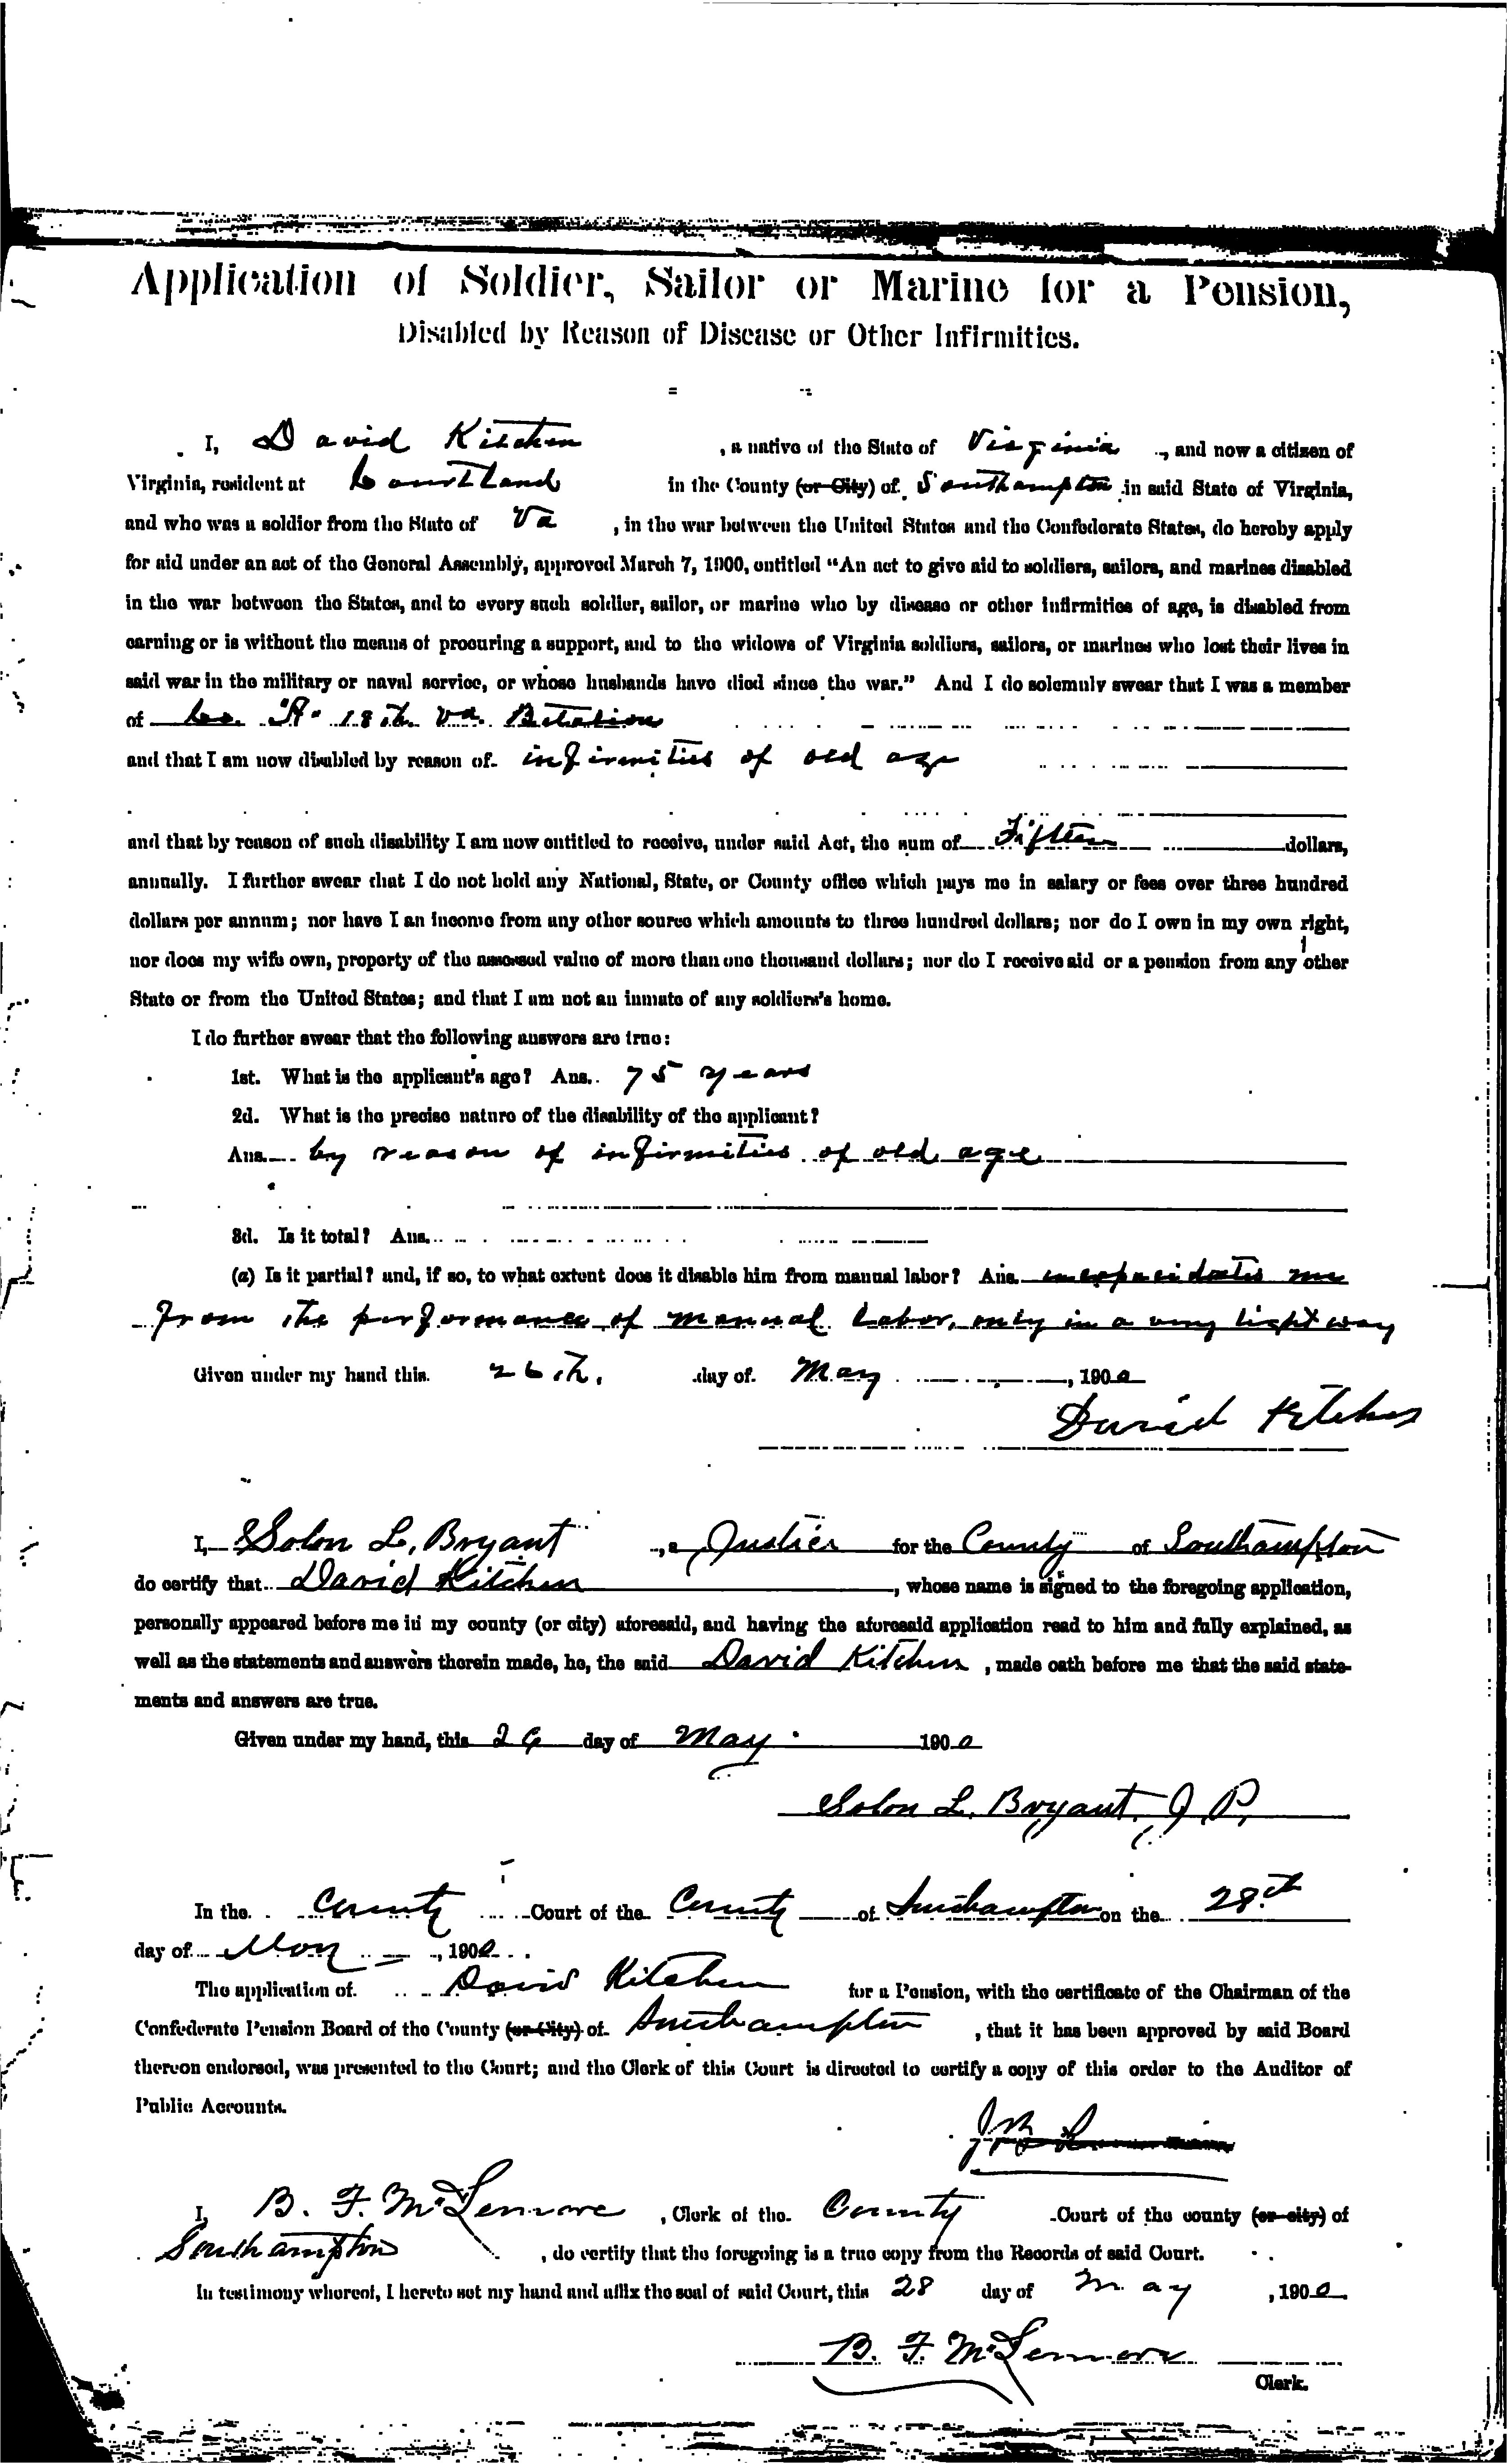 Application of Soldier, Sailor or Marine for a Pension,
Disabled by Reason of Disease or Other Infirmities.
I, David Kitchen, a native of the State of Virginia, and now a citizen of
Virginia, resident at Courtland in the County (or City) of Southampton in said State of Virginia,
and who was a soldier from the State of Va, in the war between the United States and the Confederate States, do hereby apply
for aid under an act of the General Assembly, approved March 7, 1900, entitled "An act to give aid to soldiers, sailors, and marines disabled
in the war between the States, and to every such soldier, sailor, or marine who by disease or other infirmities of age, is disabled from
earning or is without the means of procuring a support, and to the widows of Virginia soldiers, sailors, or marines who lost their lives in
said war in the military or naval service, or whose husbands have died since the war." And I do solemnly swear that I was a member
of Co. "A" 18th Va. Batalion
and that I am now disabled by reason of infirmities of old age
and that by reason of such disability I am now entitled to receive, under said Act, the sum of Fifteen dollars,
annually. I further swear that I do not hold any National, State, or County office which pays me in salary or fees over three hundred
dollars per annum; nor have I an income from any other source which amounts to three hundred dollars; nor do I own in my own right,
nor does my wife own, property of the assessed value of more than one thousand dollars; nor do I receive aid or a pension from any other
State or from the United States; and that I am not an inmate of any soldiers's home.
I do further swear that the following answers are true:
1st. What is the applicant's age? Ans. 75 years
2d. What is the precise nature of the disability of the applicant?
Ans. by reason of infirmities of old age
3d. Is it total? Ans.
(a) Is it partial? and, if so, to what extent does it disable him from manual labor? Ans. incapacidates me
from the performance of manual labor, only in a very light way
Given under my hand this 26th, day of May, 1900
David Kitchen
I, Solon L. Bryant, a Justice for the County of Southampton
do certify that David Kitchen, whose name is signed to the foregoing application,
personally appeared before me in my county (or city) aforesaid, and having the aforesaid application read to him and fully explained, as
well as the statements and answers therein made, he, the said David Kitchen, made oath before me that the said state-
ments and answers are true.
Given under my hand, this 26 day of May 1900
Solon L. Bryant, J. P.
In the County Court of the County of Southampton on the 28th
day of May, 1900.
The application of David Kitchen for a Pension, with the certificate of the Chairman of the
Confederate Pension Board of the County (or City) of Southampton, that it has been approved by said Board
thereon endorsed, was presented to the Court; and the Clerk of this Court is directed to certify a copy of this order to the Auditor of
Public Accounts.
I, B. F. McLemore, Clerk of the County Court of the county (or city) of
Southampton, do certify that the foregoing is a true copy from the Records of said Court.
In testimony whereof, I hereto set my hand and affix the seal of said Court, this 28 day of May, 1900.
B. F. McLemore
Clerk.